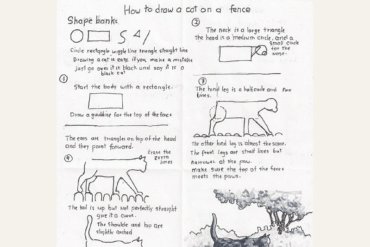 How to draw a cat on a fence
Shape bank:
Circle rectangle wiggle line triangle straight line
Drawing a cat is easy. if you make a mistake
just go over it in black and say it is a
black cat
①
Start the body with a rectangle.
Draw a guideline for the top of the fence
②
The neck is a large triangle
The head is a medium circle, and a
small circle for
the nose.
③
The hind leg is a
lines.
The other hind leg is almost the same.
The front legs are small lines but
narrower at the paw.
make sure the top of the fence
meets the paws.
The ears are triangles on top of the head
and they point forward.
④
Erase the
guide
lines
The tail is up but not perfectly straight
give it a curve.
The shoulder and too are
slightly